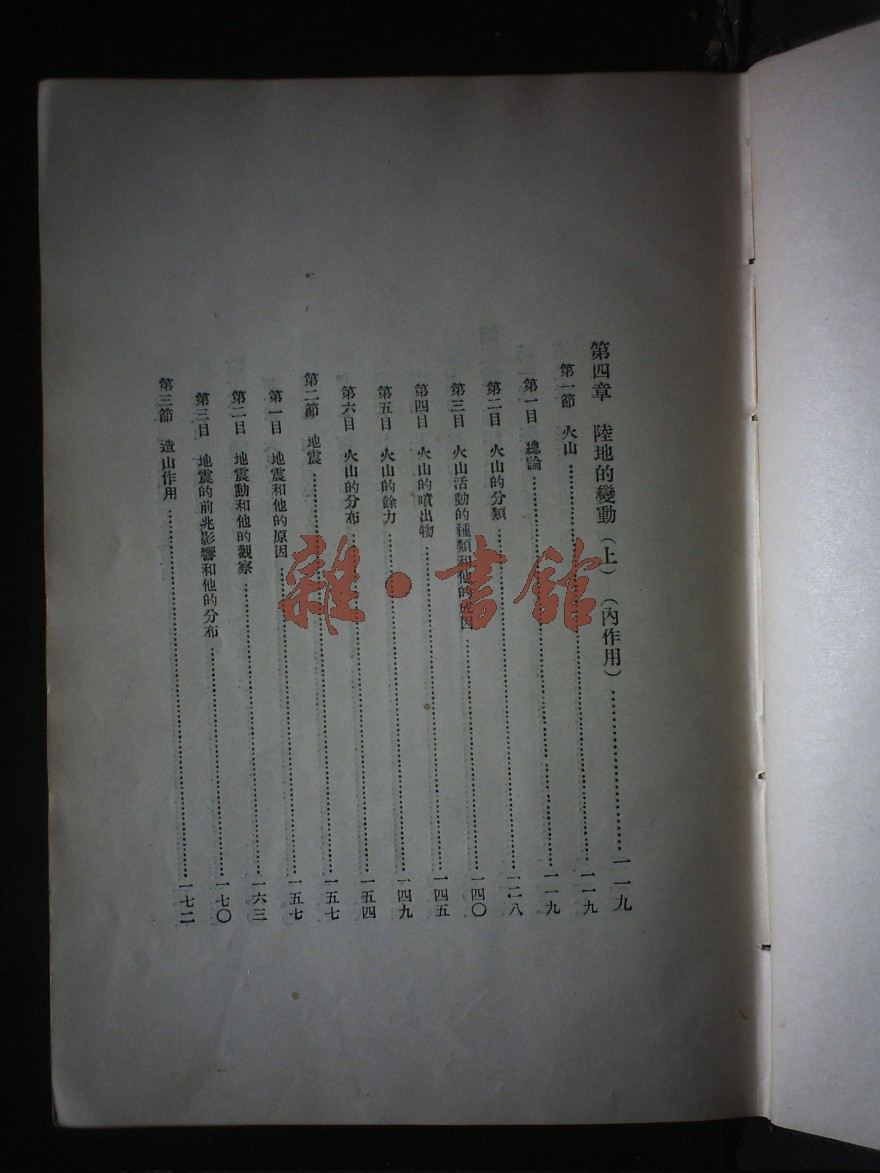 第四章　陸地的變動（上）（內作用）…………一一九
第一節　火山…………一一九
第一目　總論…………一一九
第二目　火山的分類…………一二八
第三目　火山活動的種類和他的成因…………一四〇
第四目　火山的噴出物…………一四五
第五目　火山的餘力…………一四九
第六目　火山的分布…………一五四
第二節　地震…………一五七
第一目　地震和他的原因…………一五七
第二目　地震動和他的觀察…………一六三
第三目　地震的前兆影響和他的分布…………一七〇
第三節　造山作用…………一七二
雜·書館